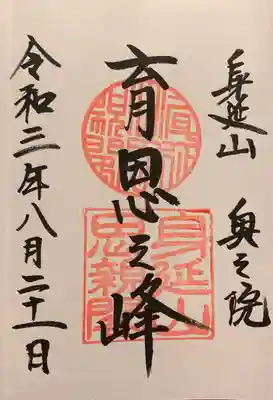 身延山　奥之院
育恩之峰
令和三年八月二十一日
身延山
思親閣